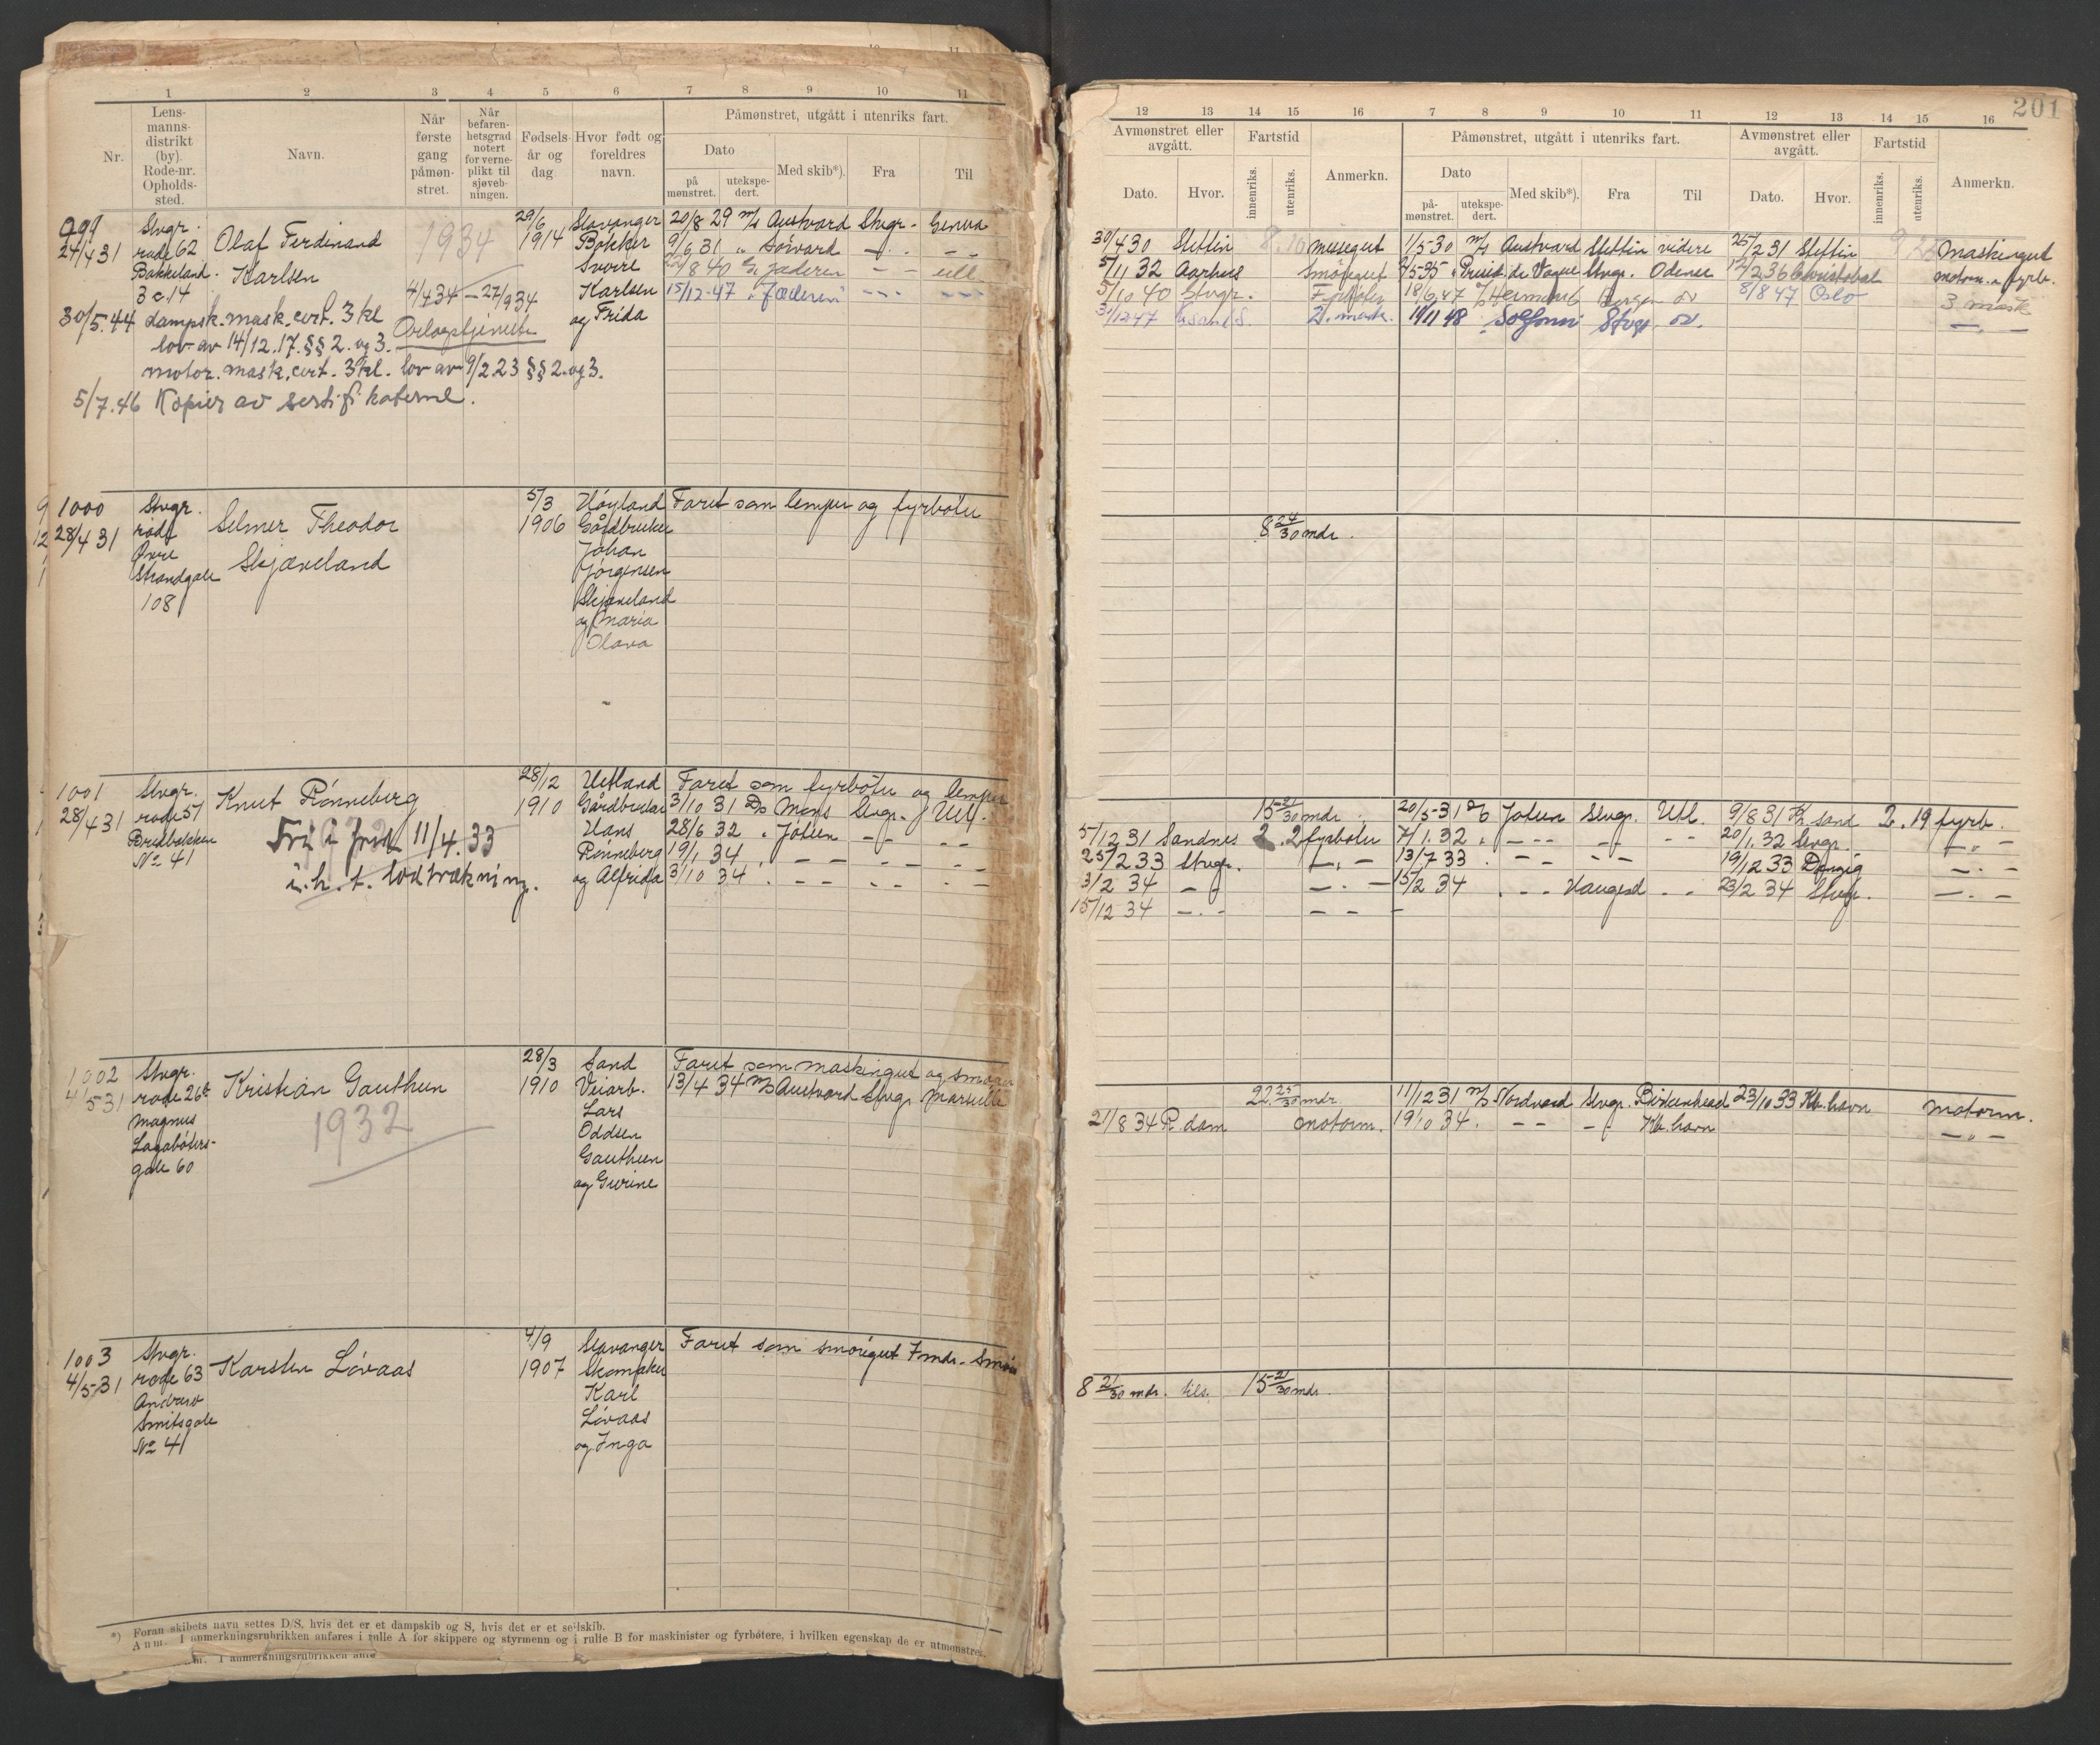 1 2 3 4 5 6 7 8 9 10 11
Nr.
Lens-
manns-
distrikt
(by).
Rode-nr.
Opholds-
sted.
Navn.
Når
første
gang
påmøn-
stret.
Når
befaren-
hetsgrad
notert
for verne-
plikt til
sjøveb-
ningen.
Fødsels-
år og
dag
Hvor født og
foreldres
navn.
Påmønstret, utgått i utenriks fart.
Dato
på
mønstret.
utekspe-
dert.
Med skib*).
Fra
Til
999
24/4 31
Stvgr.
rode 62
Bakkeland.
3 c. 14
Olaf Ferdinand
Karlsen
1934
4/4 34 – 27/9 34
Orlogstjeneste
29/6
1914
Stavanger
Bakker
Karlsen
og Frida
20/8 29 m/s Austvard Stvgr. - Genua
9/6 31 " Sörvard — . — . —
8 40 Jæderen — - utl
15/12-47 " Jæderen
30/5.44 dampsk. mask. cert. 3 kl
lov av 14/12.17. §§ 2. og 3.
motor. mask. cert. 3 kl. lov av 9/2.23 §§ 2. og 3.
5/7.46 Kopier av sertifikaterne.
1000
28/4 31
Stvgr.
rode
Øvre
Strandgate
108
Selmer Theodor
Skjæveland
5/3
1906
Høyland
Gårdbruker
Johan
Jørgensen
Skjæveland
og Maria
Olava
Faret som lemper og fyrböter
1001
28/4 31
Stvgr.
rode 51
Bredbakken
No 41
Knut Rönneberg
Fri i fred 11/4.33
i. h. t. lodtrækning.
28/12
1910
Hetland
Gårdbruker
Hans
Rönneberg
og Alfrida
Faret som fyrböter og lemper
3/10 31 D/s Mons Stvgr. Utl.
28/6 32 " Jotun — . — - —
19/1 34 . — — — —
3/10 34 . — — — —
1002
4/5-31
Stvgr.
rode 26b
Magnus
Lagabøters-
gate 60
Kristian Gauthun
1932
28/3
1910
Sand
Veiarb.
Lars
Oddsen
Gauthun
og Gurine
Faret som maskingut og
13/4 34 m/s Austvard Stvgr. Marseille
1003
4/5-31
Stvgr.
rode 63
Andreas
Smitsgate
No 41
Karsten Lövaas
4/9
1907
Stavanger
Skomaker
Karl
Lövaas
og Inga
Faret som smörigut 7 mdr.
*) Foran skibets navn settes D/S, hvis det er et dampskib og S, hvis det er et seilskib.
Anm. I anmerkningsrubrikken anføres i rulle A for skippere og styrmenn og i rulle B for maskinister og fyrbøtere, i hvilken egenskap de er utmønstret.
201
12 13 14 15 16 7 8 9 10 11 12 13 14 15 16
Avmønstret eller
avgått.
Dato.
Hvor.
Fartstid
innenriks.
utenriks.
Anmerkn.
Påmønstret, utgått i utenriks fart.
Dato
på-
mønstret.
utekspe-
dert.
Med skib*).
Fra
Til
Avmønstret eller
avgått.
Dato.
Hvor.
Fartstid
innenriks.
utenriks.
Anmerkn.
30/4 30 Stettin messegut 1/5-30 m/s Austvard Stettin videre 25/2 31 Stettin Maskingut
5/11 32 Aarhus Smörigut Stvgr. Odense 12/2 36 Cristobal motorm. - fyrb.
5/10 40 Stvgr. Fyrböter 18/6.47 Bergen ov 8/8 47 Oslo 3 mask
2. mask. 11/11 48 Solfonn Stvgr. ov. — " —
8 24/30 mdr.
15 21/30 mdr. 20/5-31 Jotun Stvgr. Utl. 9/8 31 Kr. sand 2. 19 fyrb.
5/12 31 Sandnes 2. 2 fyrböter 7/1. 32 " — - — 20/1. 32 Stvgr. — " —
25/2 33 Stvgr. — " — 13/7 33 . — — — 19/12 33 Danzig — . —
3/2 34 — " — . — 15/2 34 . — Haugesd . . 23/2 34 Stvgr. — . —
15/12 34 — . — — — —
22 25/30 mdr. 11/12 31 m/s Nordvard Stvgr. Birkenhead 23/10 33 Kb. havn motorm.
21/8 34 R. dam motorm. 19/10 34. — — — " Kb. havn — " —
8 21/30 mdr. tils. 15 21/30 mdr.